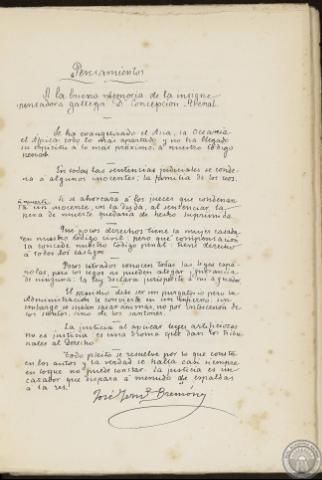 Pensamientos
A la buena memoria de la insigne
pensadora gallega D.ª Concepción Arenal.
Se ha evangelizado el Asia, la Oceanía
el África todo lo más apartado y no ha llegado
su espíritu a lo más próximo: a nuestro Código
penal.
En todas las sentencias judiciales se conde-
na á algunos inocentes; la familia de los reos.
Si se ahorcara á los jueces que condenan
a un inocente, en la duda, al sentenciar la
pena de muerte quedaría de hecho suprimida.
Muy pocos derechos tiene la mujer casada
en nuestro Código civil; pero que
la concede nuestro Código penal: tiene derecho
a todos sus castigos.
Pocos letrados conocen todas las leyes espa-
ñolas, pero los legos no pueden alegar ignorancia
de ninguna: la ley declara jurisperito á un aguador.
El presidio debe ser un purgatorio pero la
Administración lo convierte en un infierno; sin
embargo se sacan almas, no por intercesión de
los santos, sino de los santones.
La justicia al aplicar leyes
no es justicia: es una broma que dan los tribu-
nales al Derecho.
Todo pleito se resuelve por lo que consta
en los autos y la verdad se halla casi siempre
en lo que no puede constar. La justicia es un
cazador que dispara á menudo de espaldas
a la res.
José Fern.z Bremón